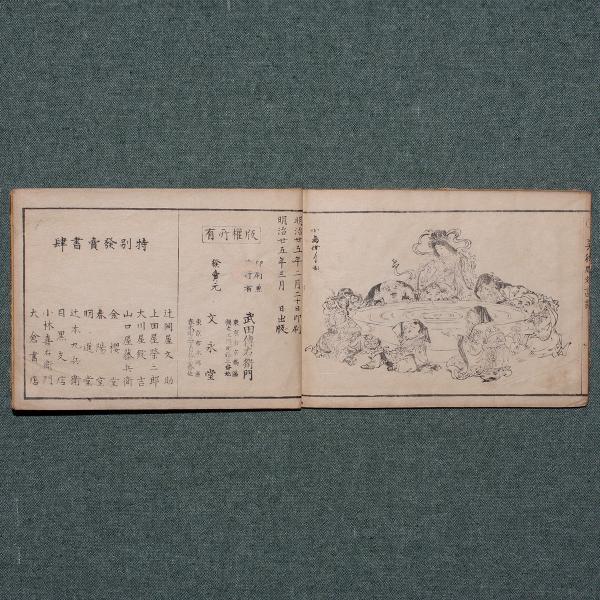 明治廿五年二月二十日印刷
明治廿五年三月　日出版
版權所有
武田傳右衛門
發賣元
文永堂
特別發賣書肆
辻岡屋文助
上田屋榮三郎
大川屋錠吉
山口屋藤兵衛
金櫻堂
春陽堂
明進堂
目黒支店
辻本九兵衛
小林喜右衛門
大倉書店